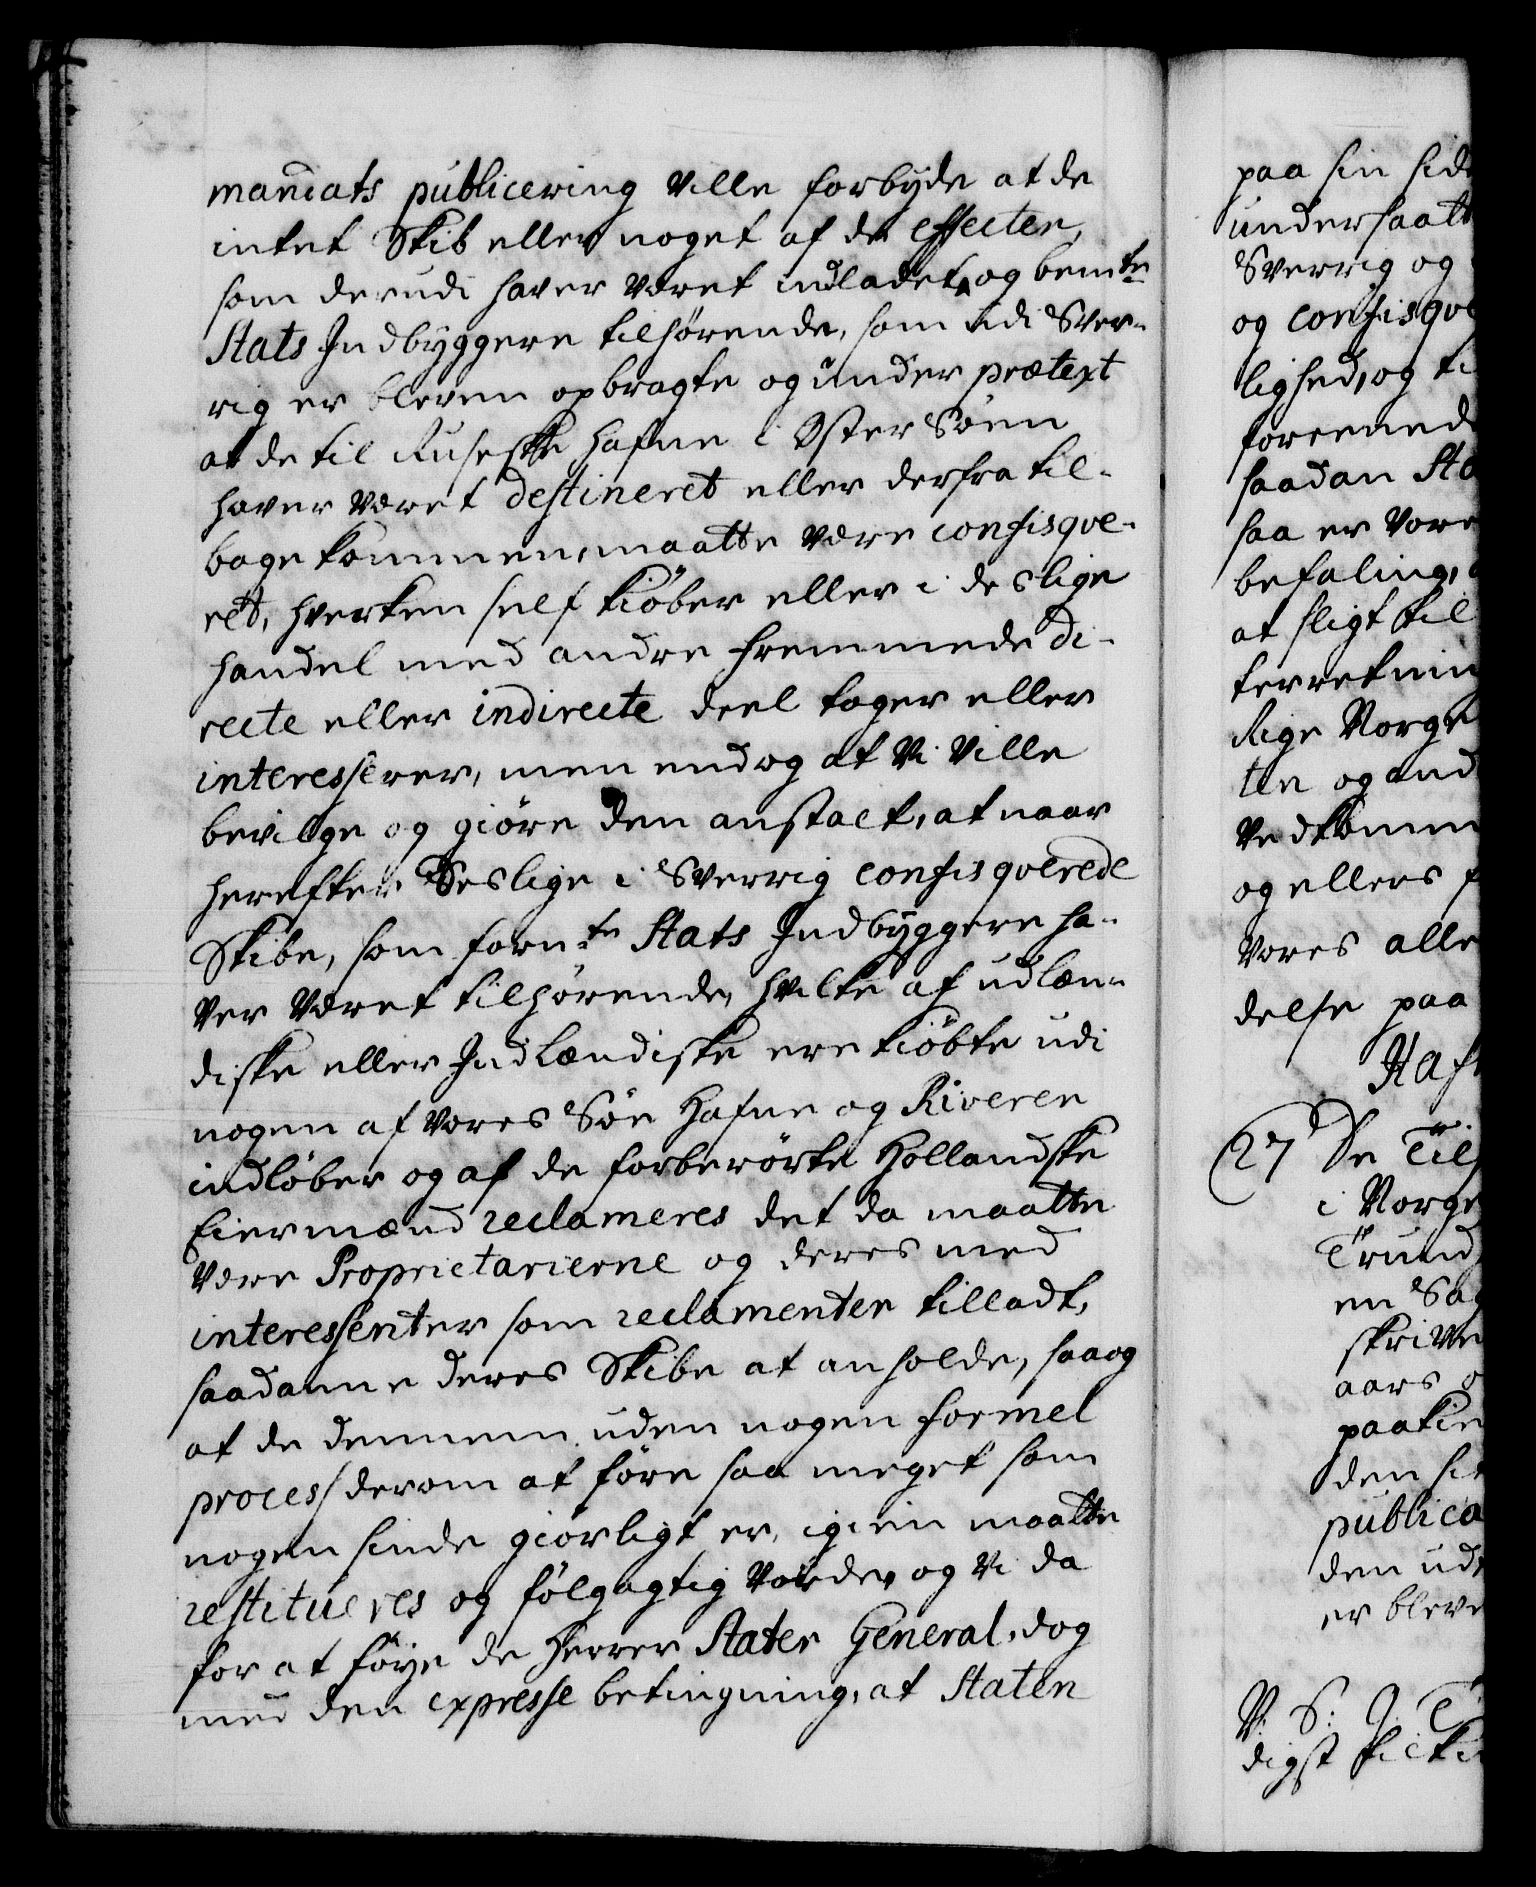 mandats publicering ville forbyde at de
intet Skib eller noget af de effecter,
som derudi haver været indladet, og bem:te
Stats Indbyggere tilhørende, som udi Sver-
rig er bleven opbragte og under prætext
at de til Russeske Hafne i Øster Søen
haver været destineret eller derfra til-
bage kommen, maatte være confisqve-
ret, hverken self kiøber eller i deslige
handel med andre fremmede di-
recte eller indirecte deel tager eller
interesserer, men endog at Vi ville
bevilge og giøre den anstalt, at naar
herefter deslige i Sverrig confisqverede
Skibe, som forn:te Stats Indbyggere ha-
ver været tilhørende, hvilke af udlæn-
diske eller Indlændiske ere kiøbte udi
nogen af Vores Søe Hafne og Riverer
indløber og af de forberørte Hollandske
Eiermænd reclameres det da maatte
være Proprietarierne og deres med
interessenter som reclamenter tilladt,
saadanne deres Skibe at anholde, saa og
at de dennem uden nogen formel
process derom at føre saa meget som
nogensinde giørligt er, igien maatte
restitueres og følgagtig vorde, og Vi da
for at føye de Herrer Stater General, dog
med den expresse betingning, at Staten
paa sin side
undersaatt
Sverrig og
og confisqve
lighed, og ti
foreened
saadan Sta
saa er Vore
befaling,
at sligt til
terretnin
Rige Norge
ten og and
Vedkomm
og ellers f
Vores alle
delse paa
Haf
27 De Til
i Norge
Trund
en Sag
skrive
aars o
paakie
den si
publica
den ud
er bleve
V: S: G: T
digst